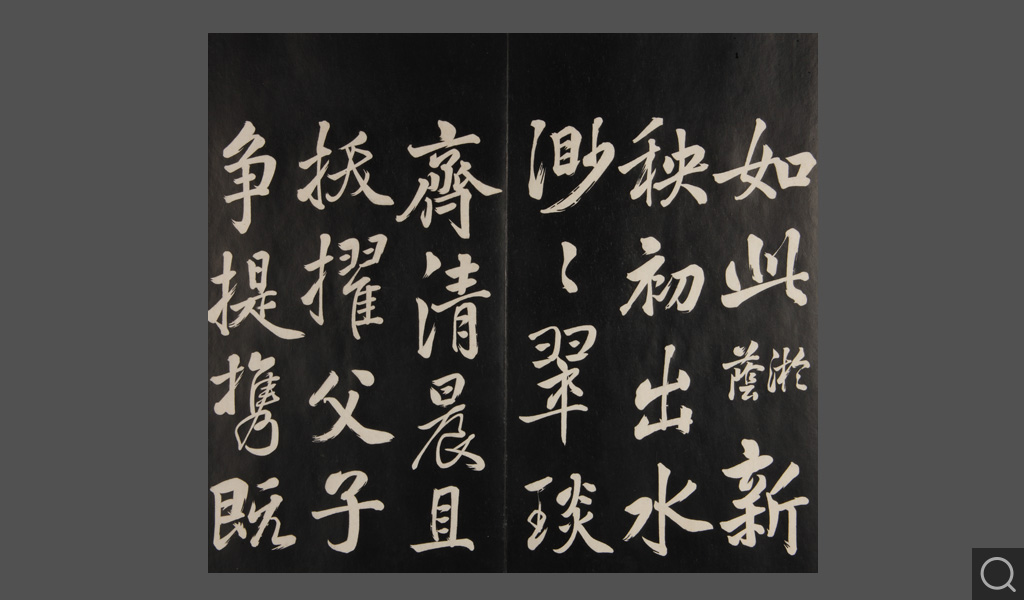 如此淤蔭新
秧初出水
渺〻翠琰
齊清晨且
拔擢父子
争提携既